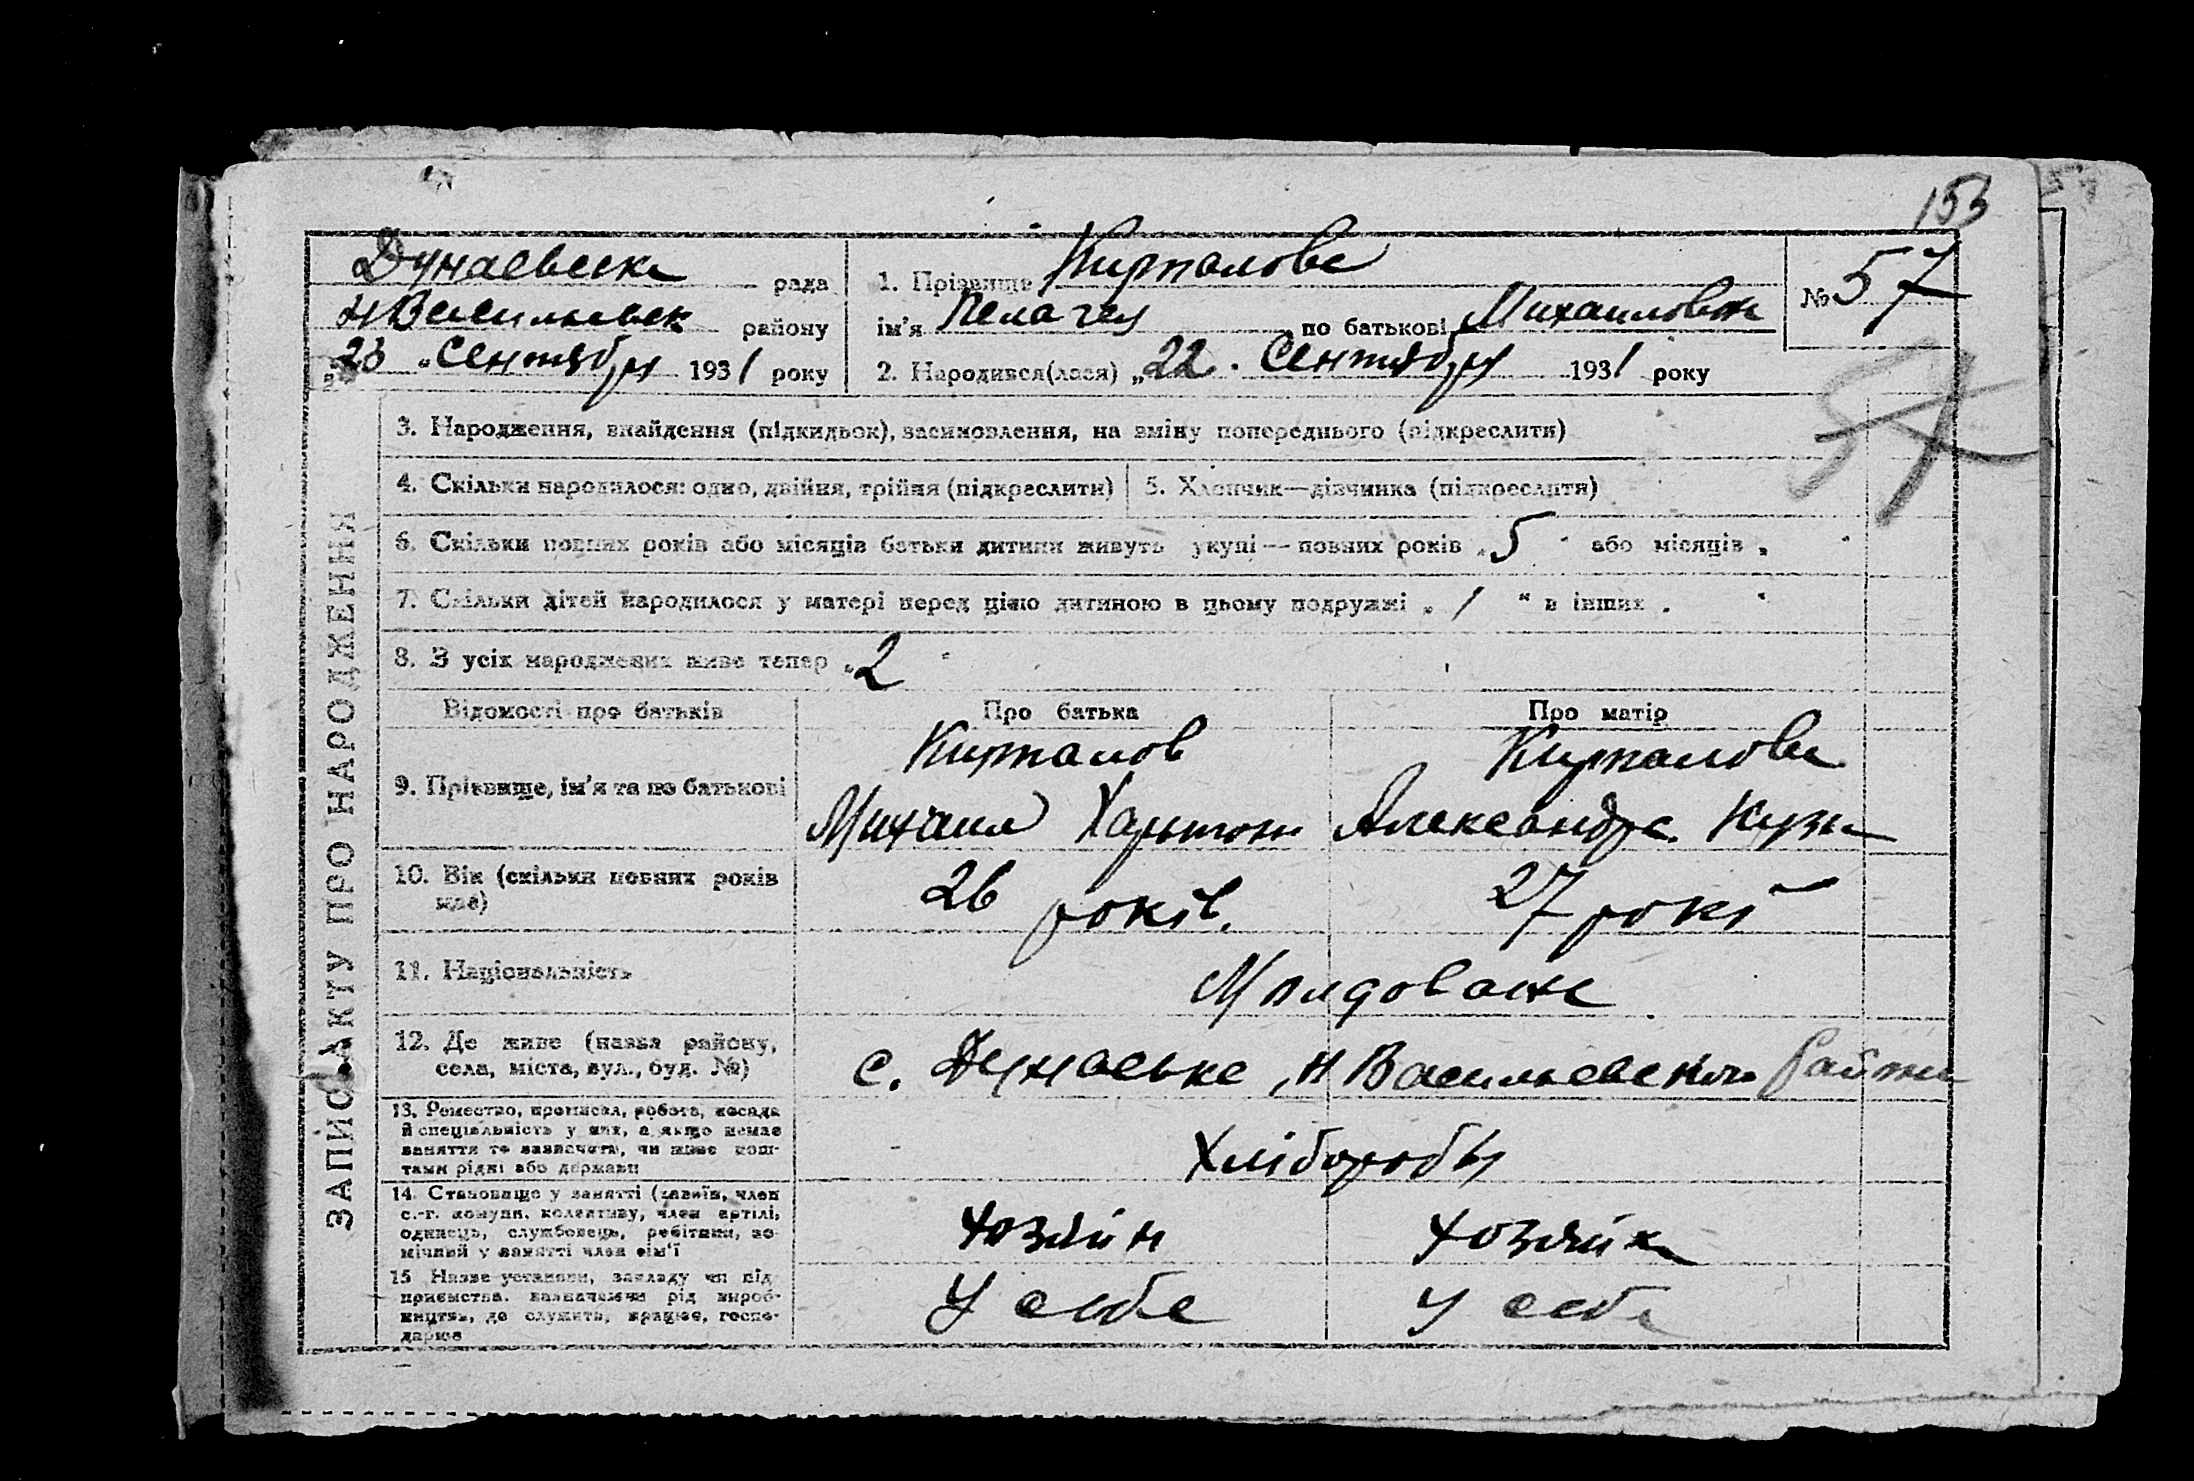 153
Дунаевська рада
НВасильевск району
"23" Сентября 1931 року
1. Прізвище Кирталова
ім'я Пелагея по батькові Михаиловна
№ 57
2. Народився(лася) "22" Сентября 1931 року
57
ЗАПИС АКТУ ПРО НАРОДЖЕННЯ
3. Народження, знайдення (підкидьок), засиновлення, на зміну попереднього (підкреслити)
4. Скільки народилося: одно, двійня, трійня (підкреслити)
5. Хлопчик—дівчинка (підкреслити)
6. Скільки повних років або місяців батьки дитини живуть укупі — повних років „5" або місяців „ "
7. Скільки дітей народилося у матері перед цією дитиною в цьому подружжі „1" в інших „ "
8. З усіх народжених живе тепер „2"
Відомості про батьків
Про батька
Про матір
9. Прізвище, ім'я та по батькові
Кирталов
Михаил Харитон
Кирталова
Александра Кузм
10. Вік (скільки повних років
має)
26 років.
27 рокі
11. Національність
Молдоване
12. Де живе (назва району,
села, міста, вул., буд. №)
с. Дунаевке, НВасильевского района
13. Ремество, промисел, робота, посада
й спеціяльність у них, а якщо немає
заняття то зазначити, чи живе кош-
тами рідні або держави
Хлібороби
14. Становище у занятті (хазяїн, член
с.-г. комуни, колективу, член артілі,
одинець, службовець, робітник, по-
мічний у занятті член сім'ї
хозяин
хозяйка
15 Назва установи, закладу чи під-
приємства, зазначаючи рід вироб-
ництва, де служить, працює, госпо-
дарює
У себе
У себе